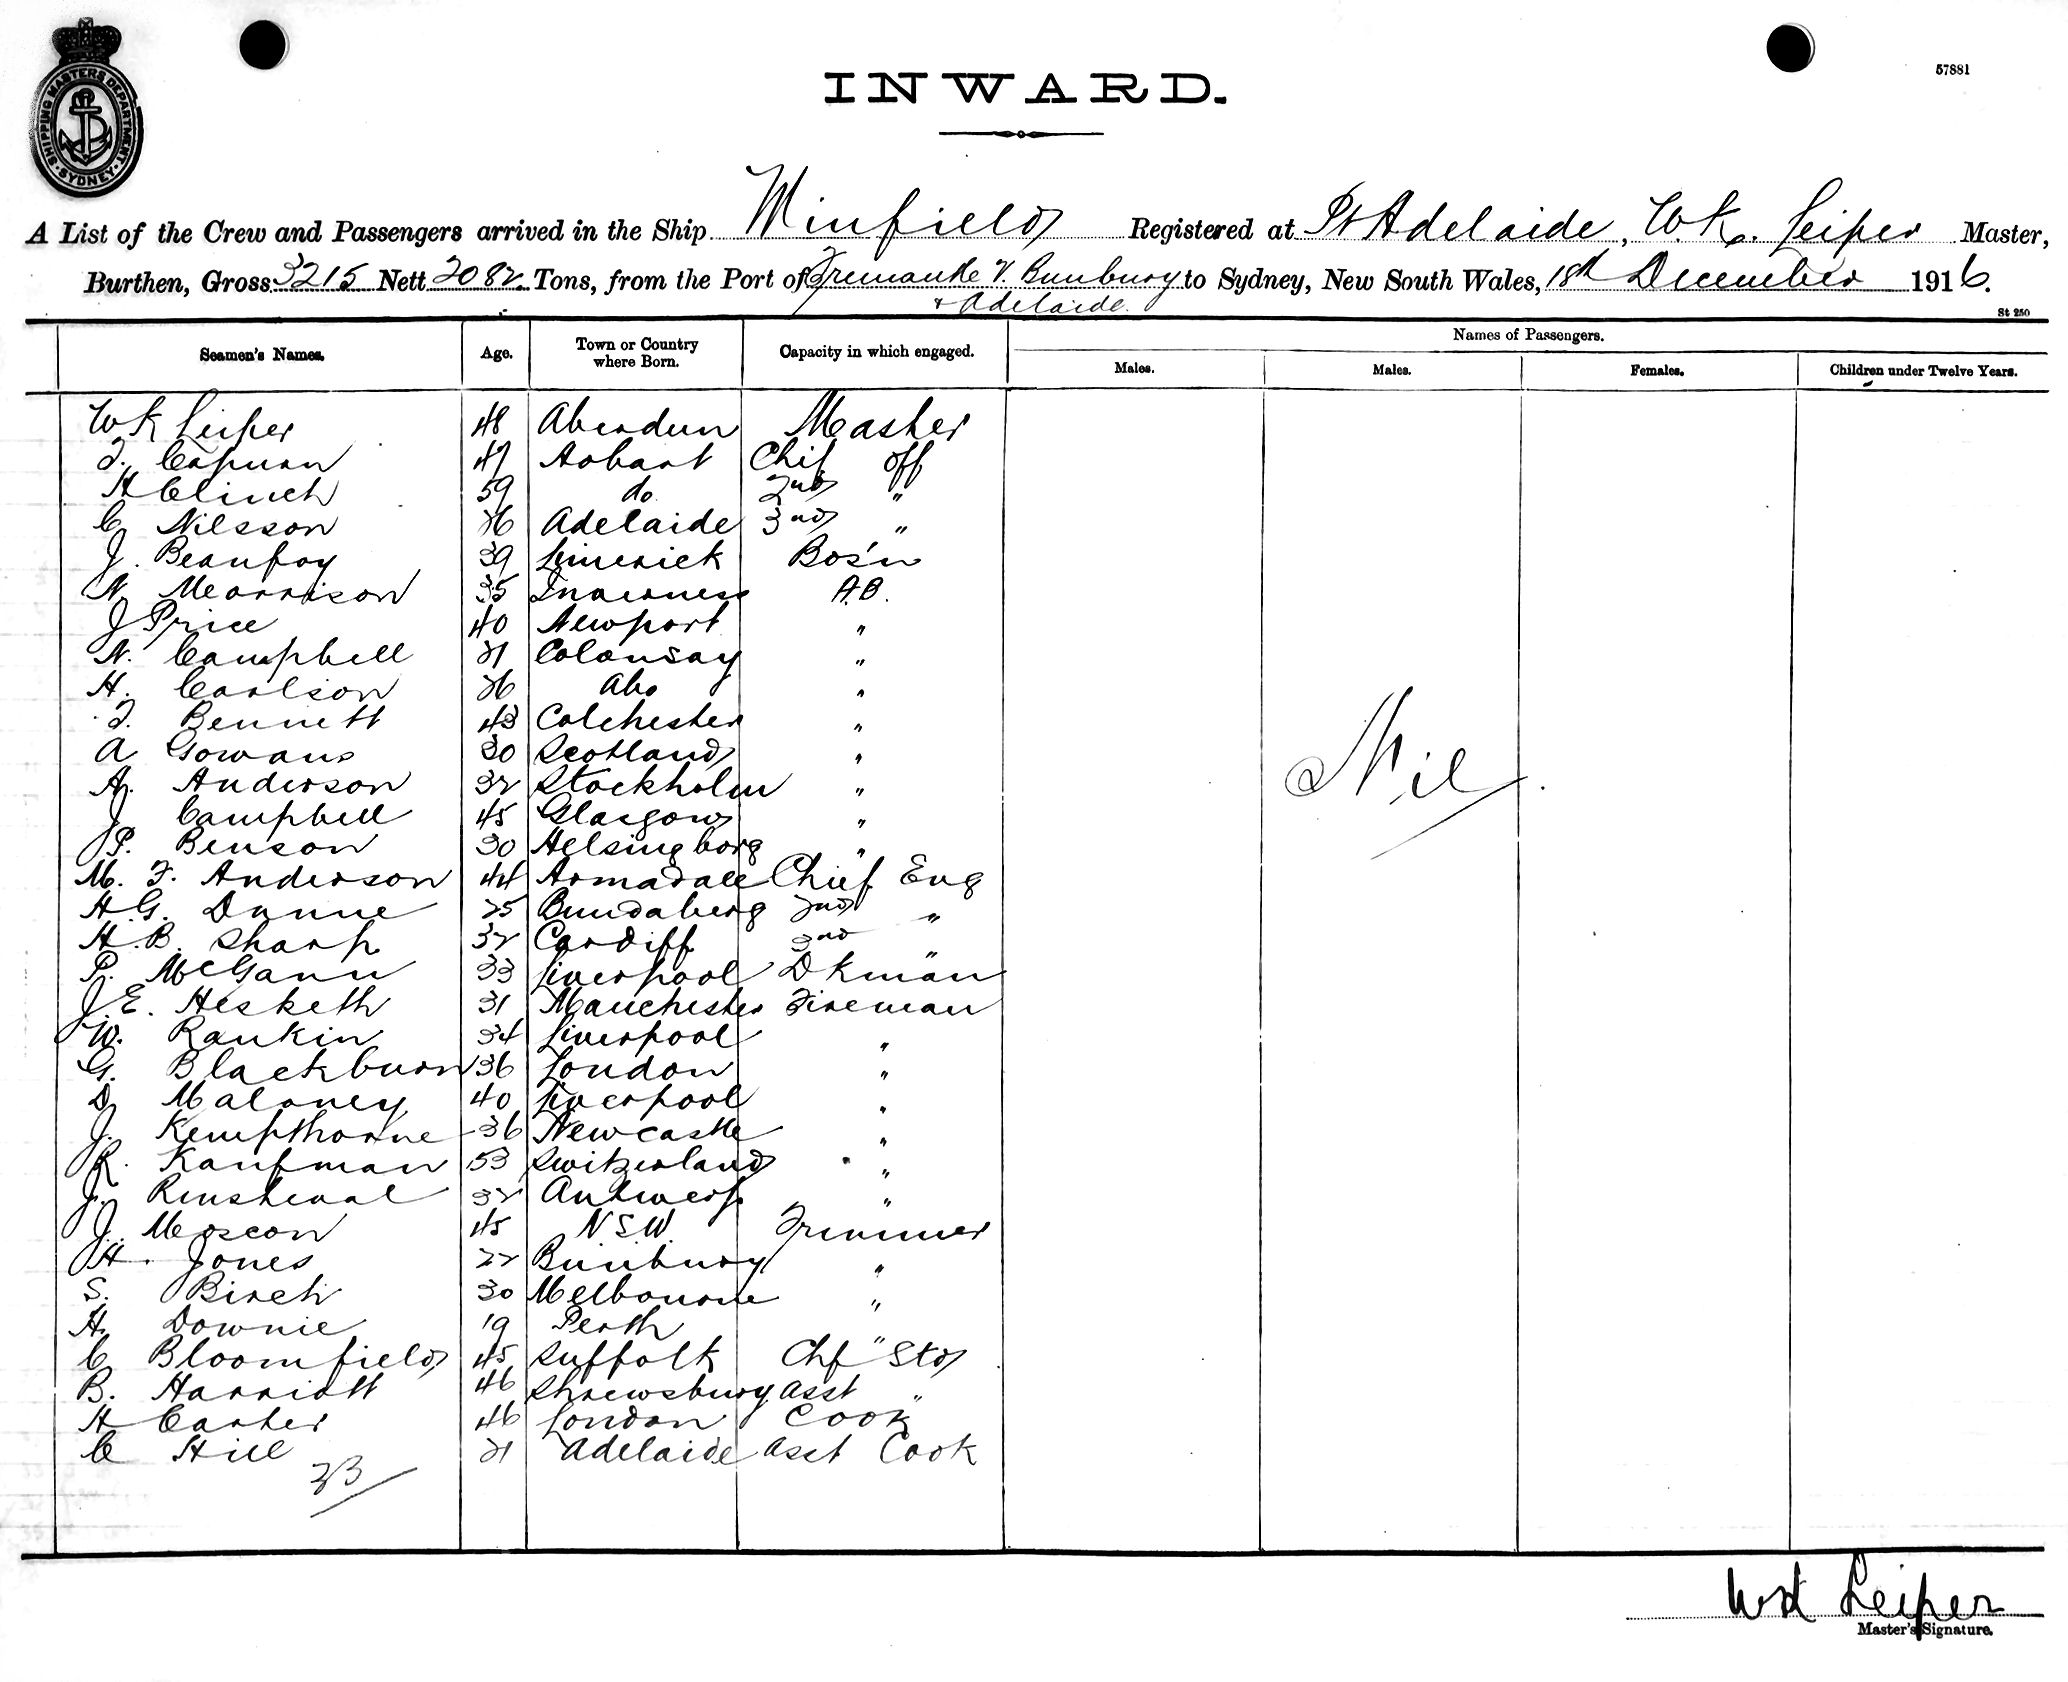 SHIPPING MASTERS DEPARTMENT SYDNEY
57881
INWARD.
A List of the Crew and Passengers arrived in the Ship Minfield Registered at Pt Adelaide, W.K. Leiper Master,
Burthen, Gross 3215 Nett 2082 Tons, from the Port of Fremantle V. Bunbury to Sydney, New South Wales, 18th December 1916.
+ Adelaide.
St 250
Seamen's Names. Age. Town or Country where Born. Capacity in which engaged. Names of Passengers.
Males. Males. Females. Children under Twelve Years.
W K Leiper 48 Aberdeen Master
47 Hobart Chif off
H Clinch 59 do 2nd "
C Nilsson 26 Adelaide 3rd "
J. Beaufoy 39 Limerick Bos'n
N. Morrison 35 Inverness A.B.
J Price 40 Newport "
N. Campbell 21 Colonsay "
H. Carlson 26 Abo "
T. Bennett 43 Colchester "
A Gowans 30 Scotland "
A. Anderson 32 Stockholm "
J Campbell 45 Glasgow "
P. Benson 30 Helsingborg "
M. F. Anderson 44 Armadale Chief Eng
H.G. Dunne 25 Bundaberg 2nd "
H.B. Sharp 32 Cardiff 3rd "
P. McGann 33 Liverpool Dkman
J.E. Hesketh 31 Manchester Fireman
W. Rankin 34 Liverpool "
G. Blackburn 36 London "
D. Maloney 40 Liverpool "
J. Kempthorne 36 Newcastle "
R. Kaufman 53 Switzerland "
J. 32 Antwerp "
J. Moscon 45 NSW Trimmer
H. Jones 22 Bunbury "
S. Birch 30 Melbourne "
H. Downie 19 Perth "
C Bloomfield 45 Suffolk Chf Std
B. Harriott 46 Shrewsbury Asst "
H Carter 46 London Cook
C Hill 21 Adelaide Asst Cook
33
Nil
WK Leiper
Master's Signature.